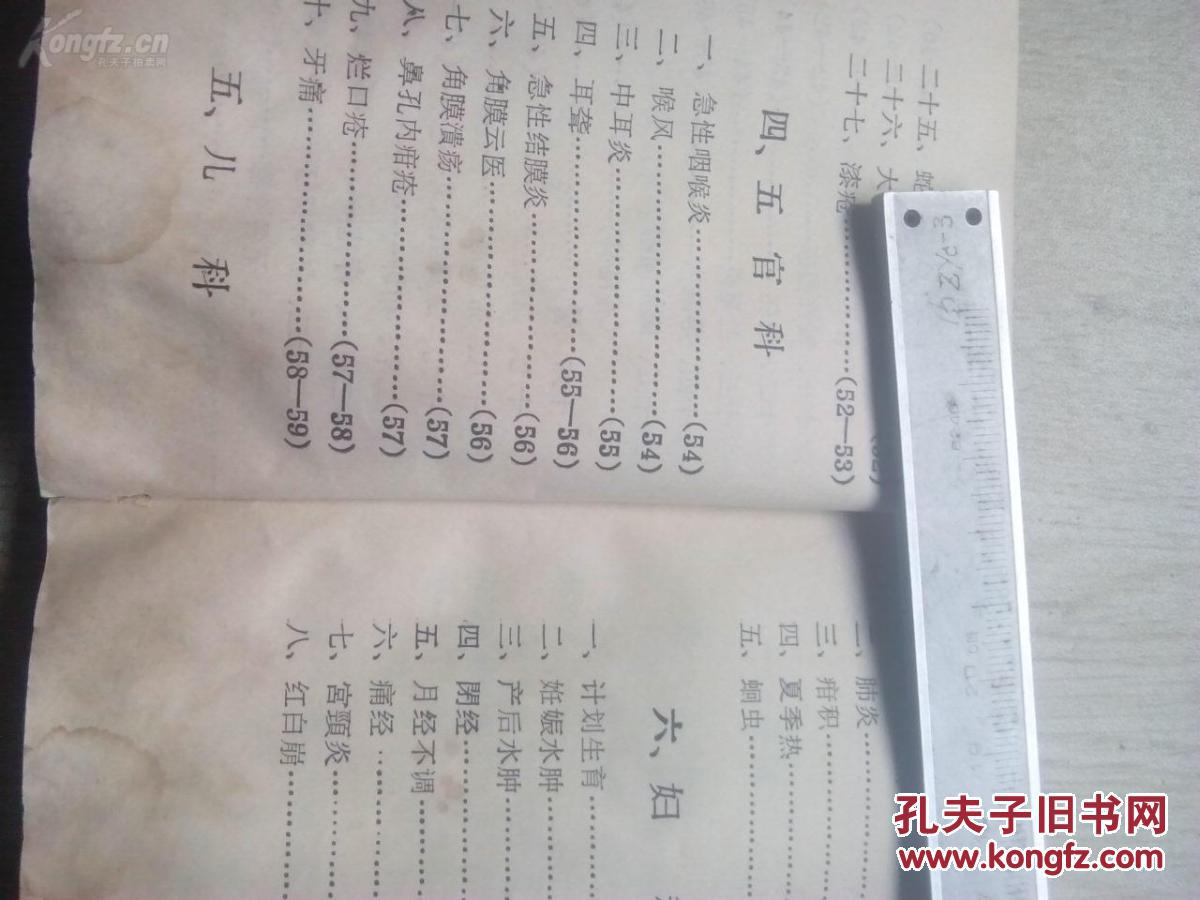 二十五、
二十六、大
二十七、漆疮……………(52—53)
四、五官科
一、急性咽喉炎……………(54)
二、喉风……………(54)
三、中耳炎……………(55)
四、耳聋……………(55—56)
五、急性结膜炎……………(56)
六、角膜云医……………(56)
七、角膜溃疡……………(57)
八、鼻孔内疳疮……………(57)
九、烂口疮……………(57—58)
十、牙痛……………(58—59)
五、儿科
肺炎……………
三、疳积……………
四、夏季热……………
五、蛔虫……………
六、妇
一、计划生育……………
二、妊娠水肿……………
三、产后水肿……………
四、閉经……………
五、月经不调……………
六、痛经……………
七、宮頸炎……………
八、红白崩……………
Kongfz.cn
孔夫子拍卖网
孔夫子旧书网
www.kongfz.com